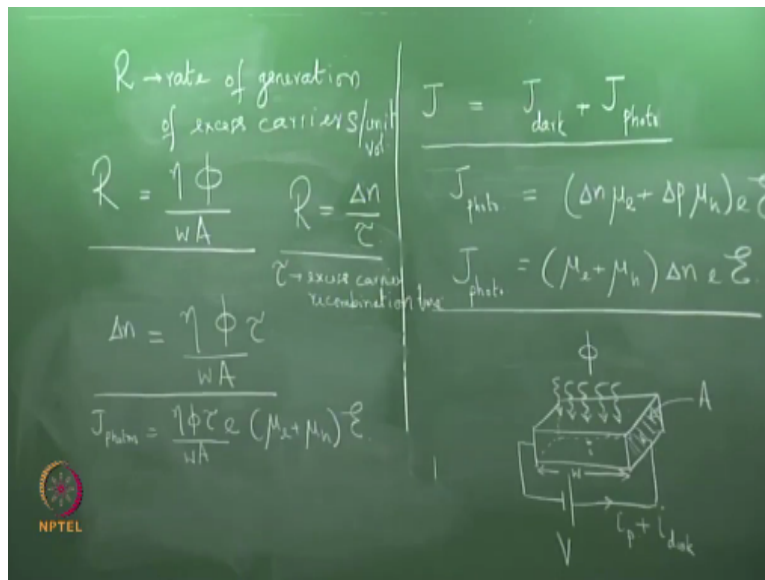 R → rate of generation
of excess carriers/unit
vol.
R = ηΦ/wA
R = Δn/τ
τ → excess carrier
recombination time
Δn = ηΦτ/wA
J_photo = ηΦτe/wA (μ_e + μ_h) ℰ
J = J_dark + J_photo
J_photo = (Δn μ_e + Δp μ_h) e ℰ
J_photo = (μ_e + μ_h) Δn e ℰ.
Φ
A
w
i_p + i_dark
V
NPTEL